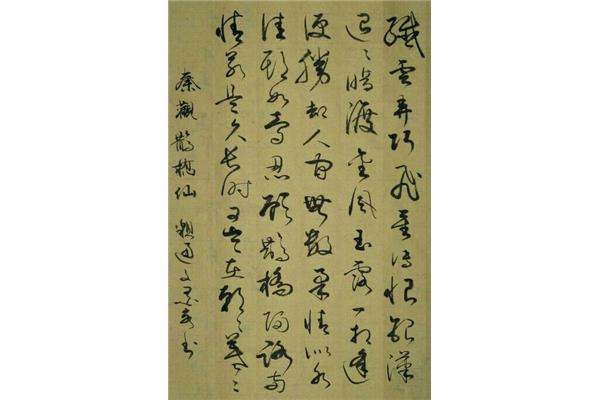 纖雲弄巧飛星傳恨銀漢
迢〻暗渡金風玉露一相逢
便勝卻人間無數柔情似水
佳期如夢忍顧鵲橋歸路兩
情若是久長時又豈在朝〻暮〻
秦觀鵲橋仙 書